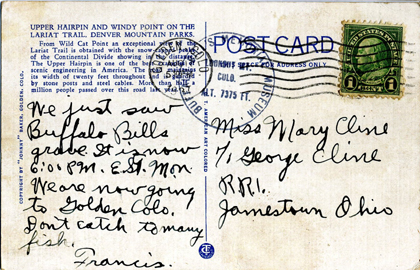 UPPER HAIRPIN AND WINDY POINT ON THE
LARIAT TRAIL, DENVER MOUNTAIN PARKS.
From Wild Cat Point an exceptional view of the
Lariat Trail is obtained with the snow
of the Continental Divide showing in the distance.
The Upper Hairpin is one of the best examples of
scenic engineering in America. The Trail maintains
its width of twenty feet throughout
by stone posts and steel cables. More than half a
million people passed over this road last year.
COPYRIGHT BY "JOHNNY" BAKER, GOLDEN, COLO.
We just saw
Buffalo Bills
grave. It is now
6:01 P.M. E.S.T. Mon
We are now going
to Golden Colo.
Don't catch to many
fish.
Francis.
C.T. AMERICAN ART COLORED
CT
POST CARD
MUSEUM
LOOKOUT MT.
COLO.
ALT. 7375 FT.
1
Miss Mary Cline
% George Cline
R.R.1.
Jamestown Ohio